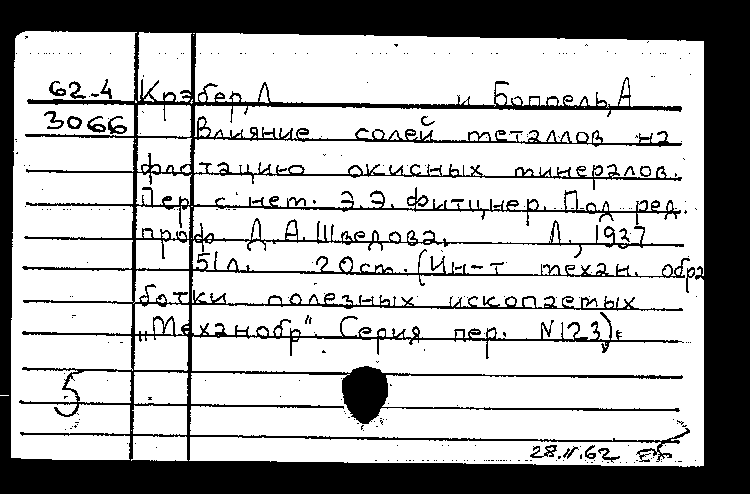 62-4 Крэбер, Л и Боппель, А
3066 Влияние солей металлов на
флотацию окисных минералов.
Пер. с нем. Э.Э. Фитцнер. Под ред.
проф. Д.А. Шведова. Л., 1937
51 л. 20 см. (Ин-т механ. обра
ботки полезных ископаемых
„Механобр". Серия пер. N 123).
5
28.II.62